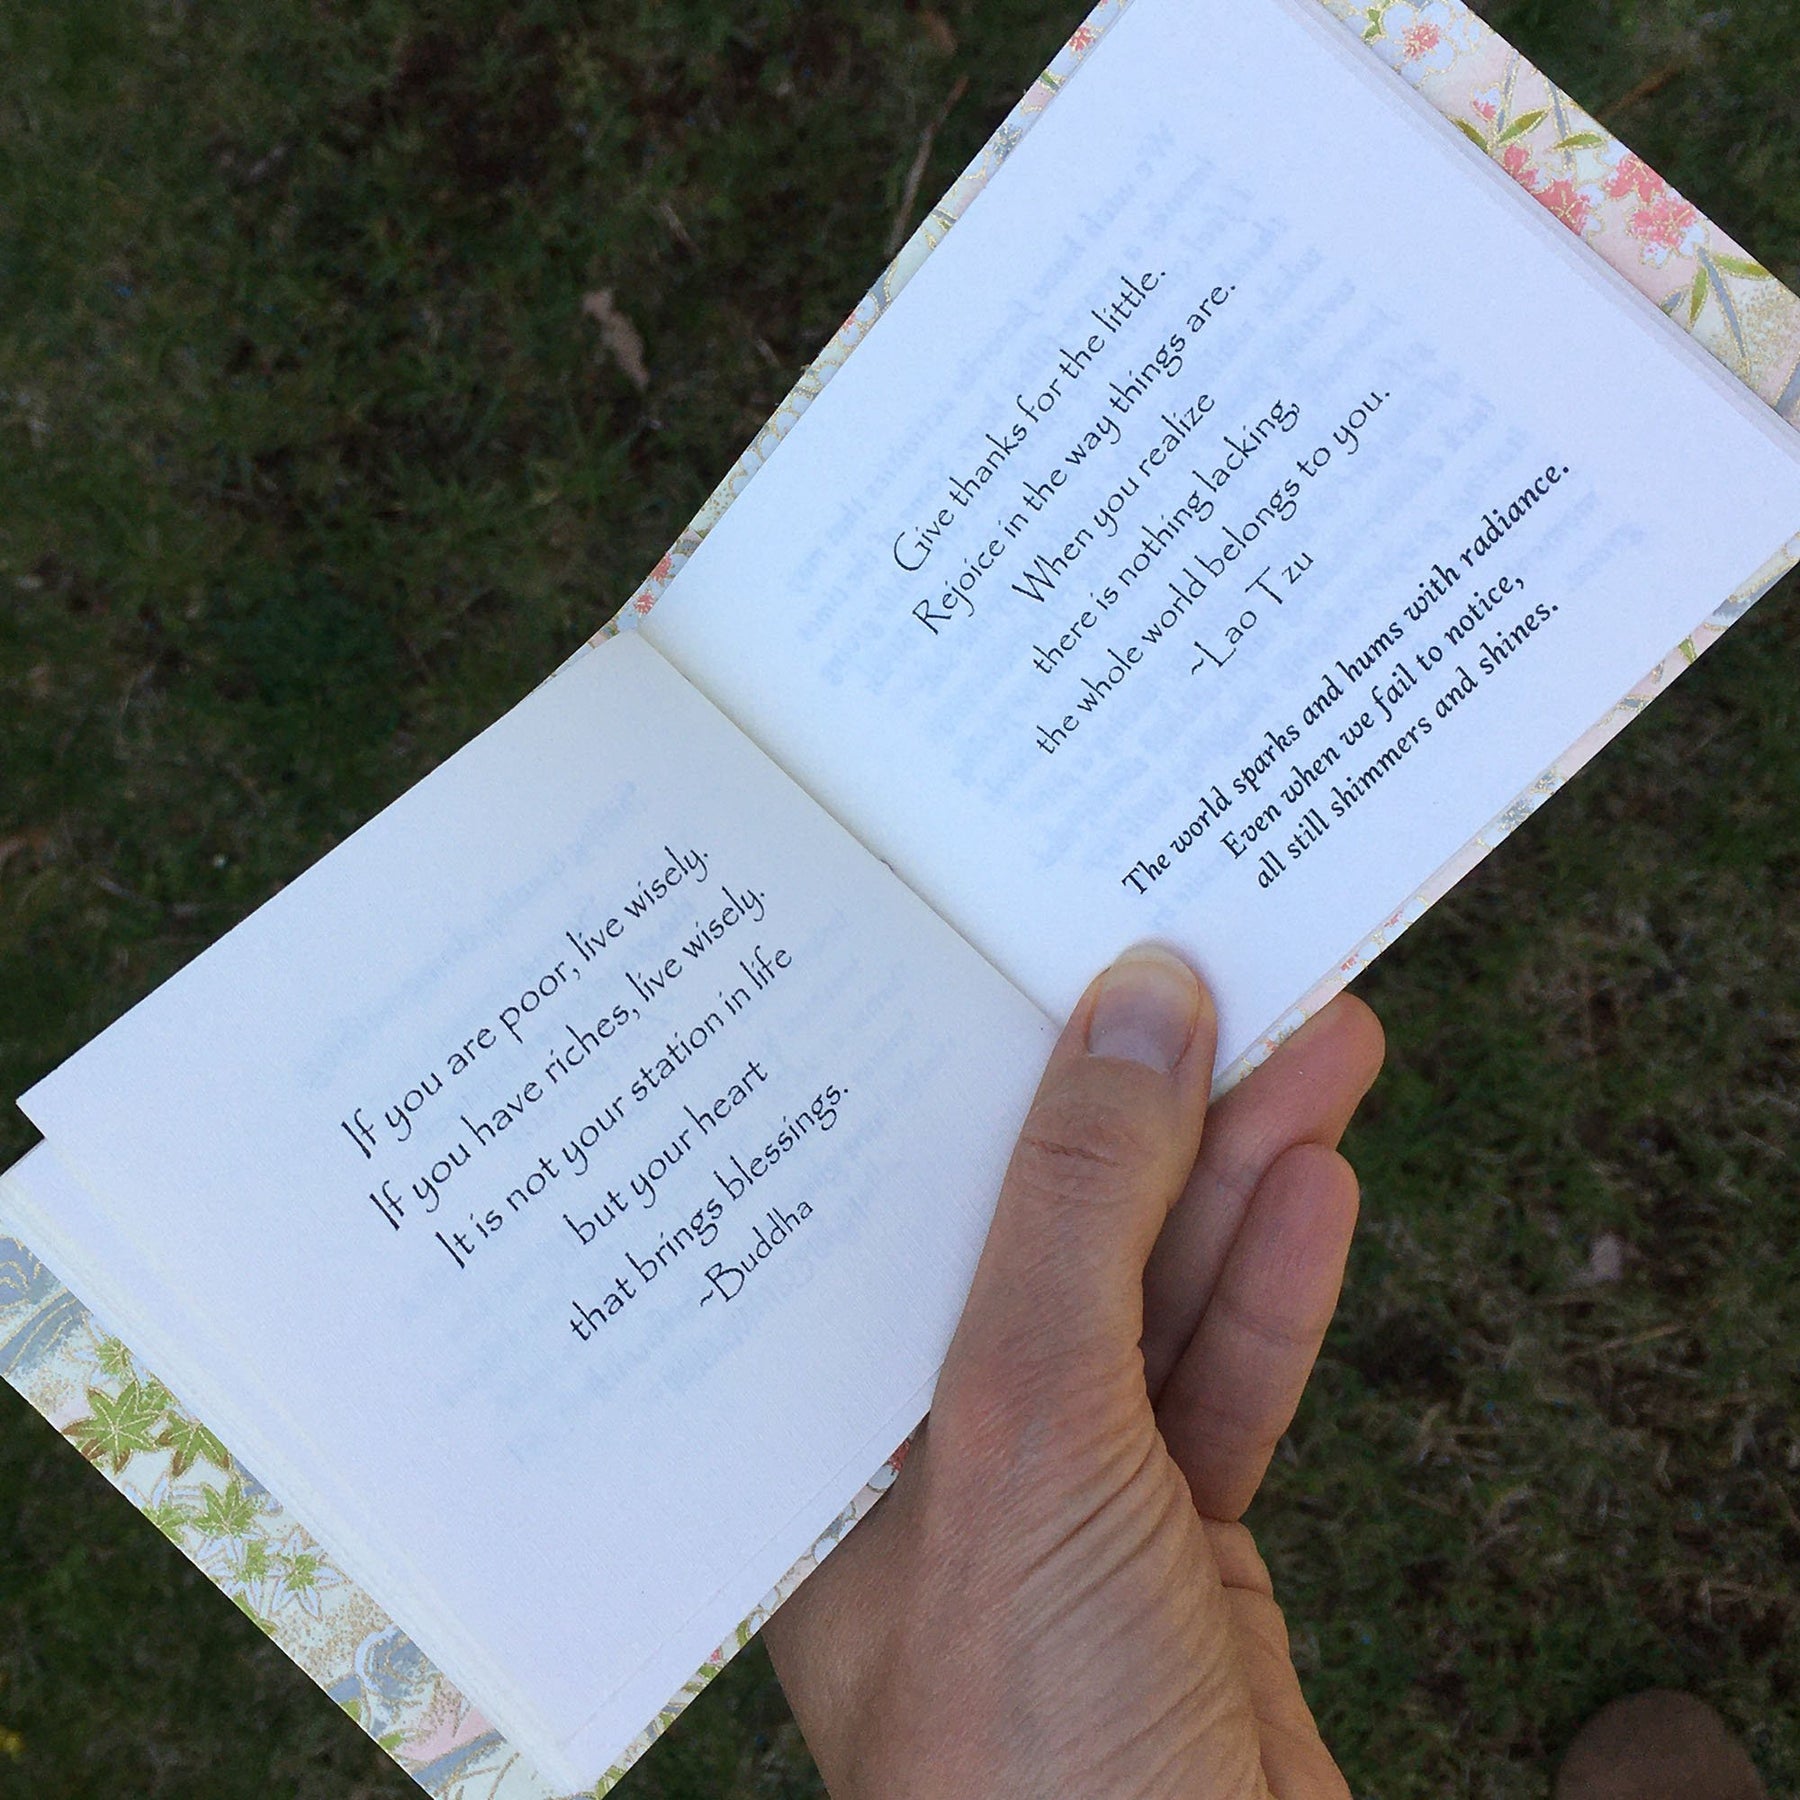 If you are poor, live wisely.
If you have riches, live wisely.
It is not your station in life
but your heart
that brings blessings.
~Buddha
Give thanks for the little.
Rejoice in the way things are.
When you realize
there is nothing lacking,
the whole world belongs to you.
~Lao Tzu
The world sparks and hums with radiance.
Even when we fail to notice,
all still shimmers and shines.